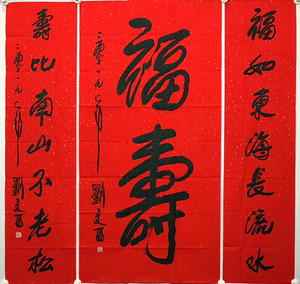 福如東海長流水
福壽
二零一九
劉文西
壽比南山不老松
二零一九
劉文西